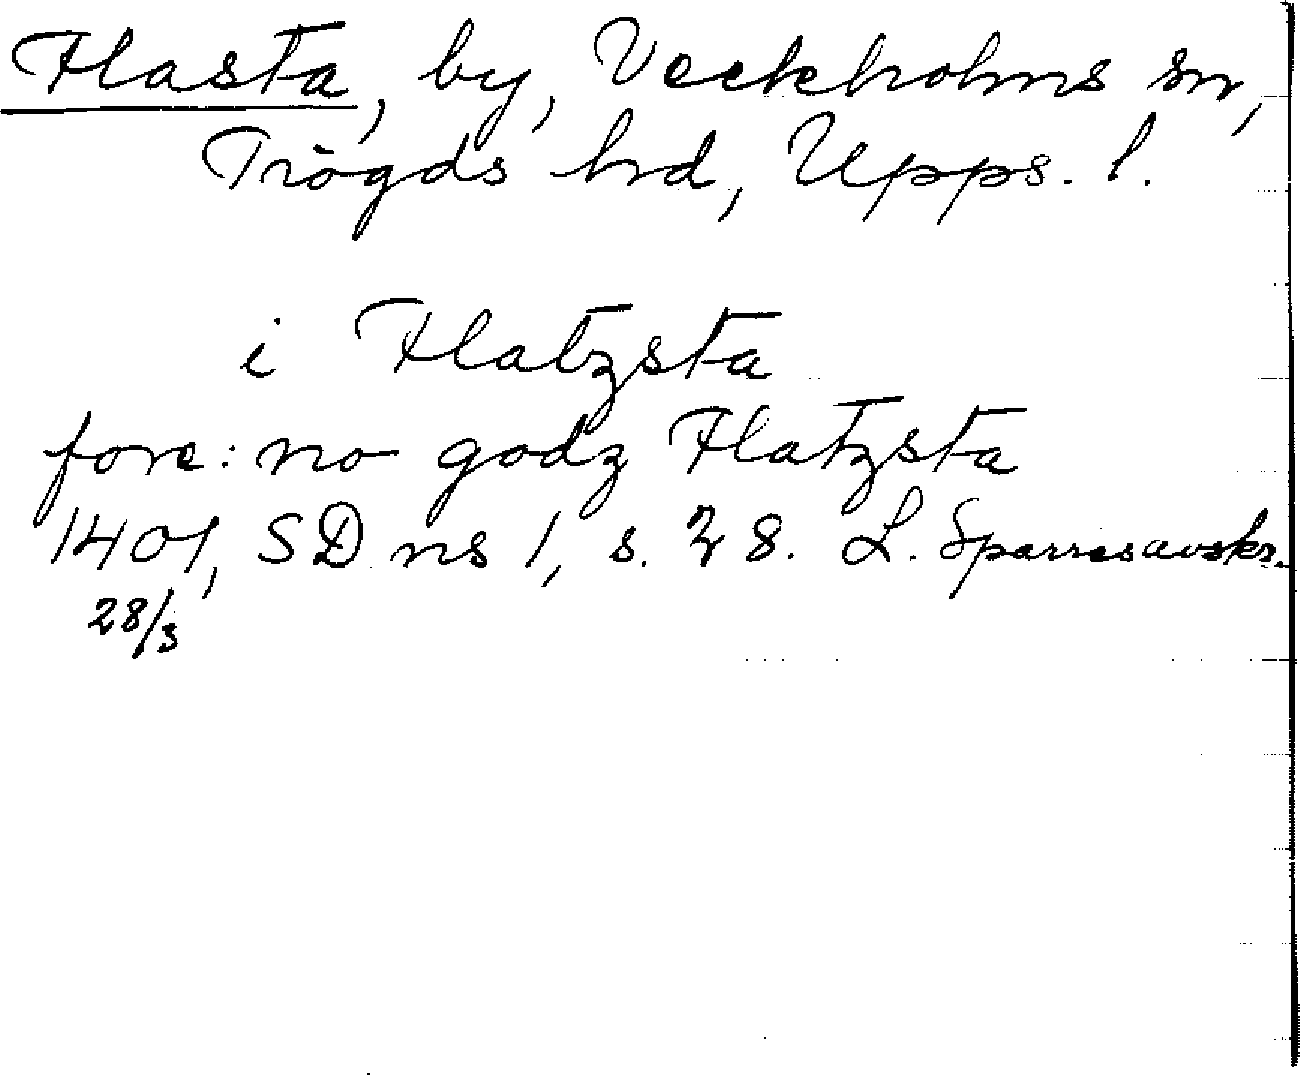 Flasta, by, Veckholms sn,
Trögds hd, Upps. l.
i Flatzsta
fore: no godz Flatzsta
1401, SD ns 1, s. 28. L. Sparres avskr.
28/3